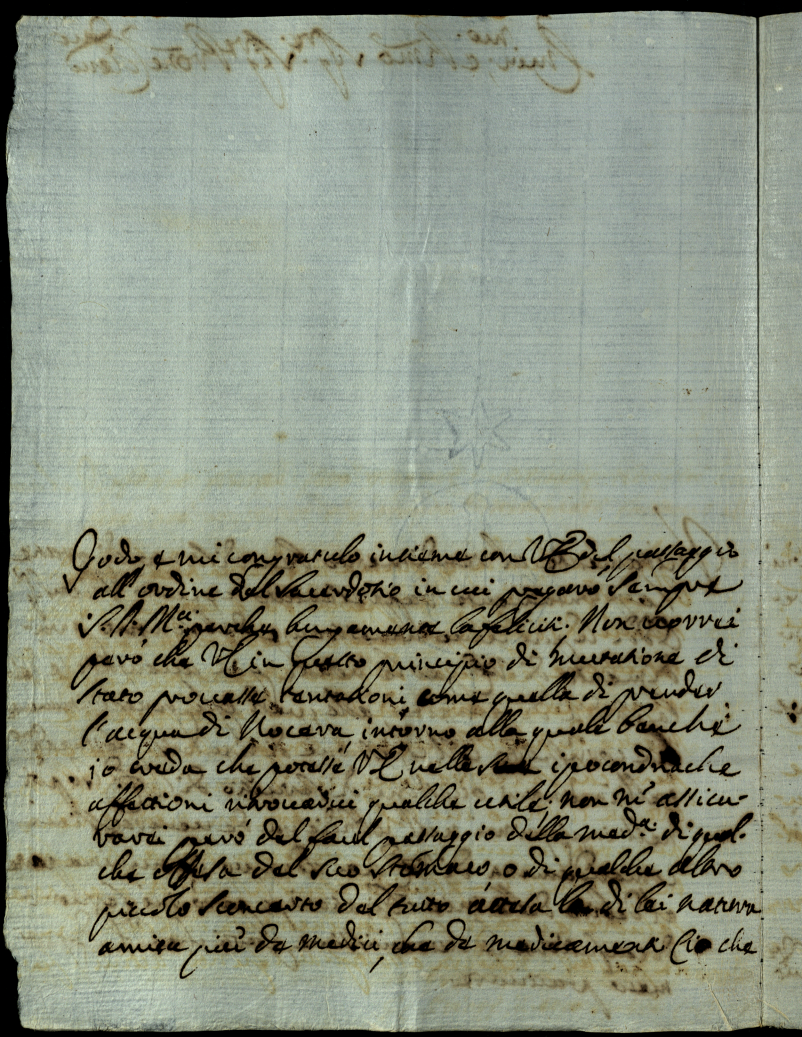 Godo, e mi congratulo insieme con VS del passaggio
all'ordine del sacerdotio in cui pregarò sempre
S. D. M.tà perche lungamente la feliciti. Non vorrei
però che VS in questo principio di mutatione di
stato provasse tentationi come quella di prender
l'acqua di Nocera intorno alla quale benche
io creda che potesse VS nelle sue ipocondriache
affettioni ritrovarci qualche utile, non m'assicu-
rarei però del facil passaggio della med.a di qual-
che offesa del suo stomaco, o di qualche altro
piccolo sconcerto del tutto attesa la di lei natura
amica più de medici, che de medicamenti. Ciò che